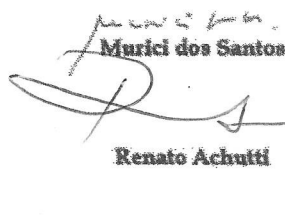 Murici dos Santos
Renato Achutti